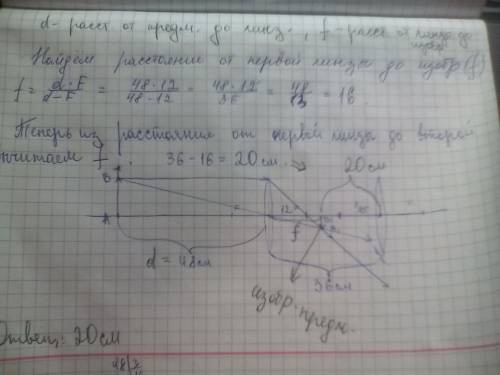 d - расст от предм. до линз., f - расст от линзы до
изобр
Найдём расстояние от первой линзы до изобр (f)
f = d·F / d-F = 48·12 / 48-12 = 48·12 / 36 = 48 / 3 = 16.
Теперь из расстояние от первой линзы до второй
вычитаем f. 36-16 = 20 см. ⇒ 20 см
B
A
12
f
d = 48 см
36 см
изобр. предм.
Ответ: 20 см